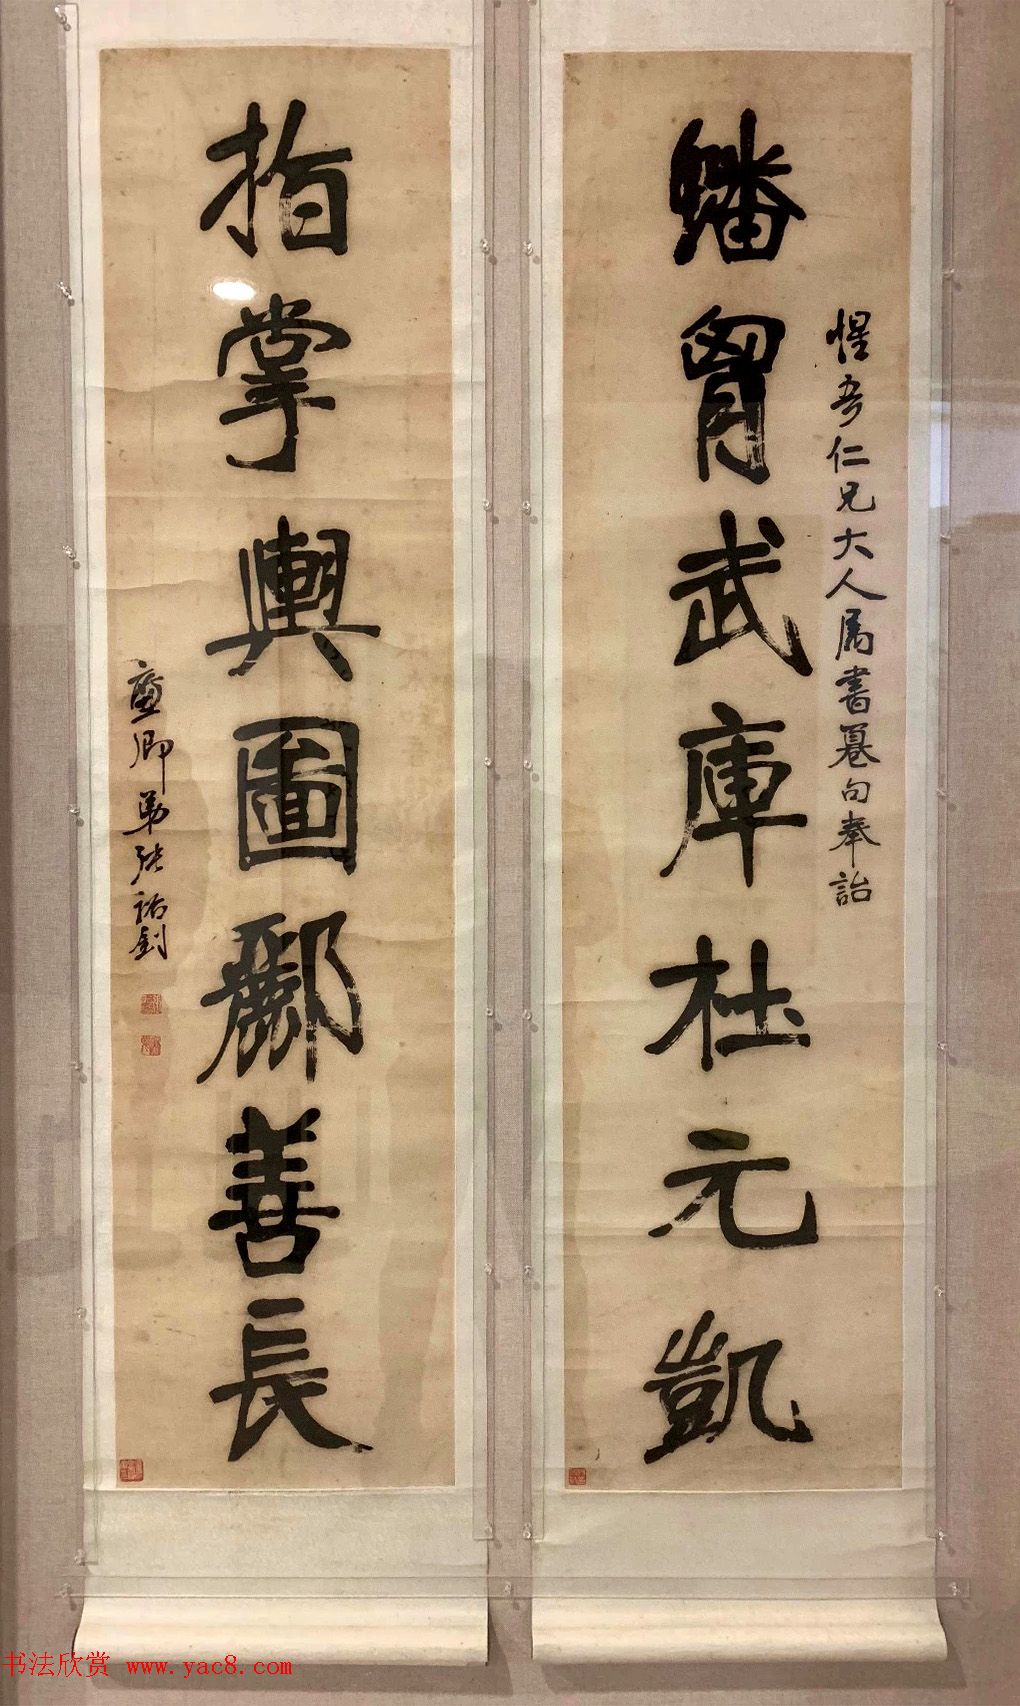 惺吾仁兄大人属書句奉詒
蟠胷武庫杜元凱
指掌輿圖酈善長
廉卿弟張裕釗
书法欣赏 www.yac8.com